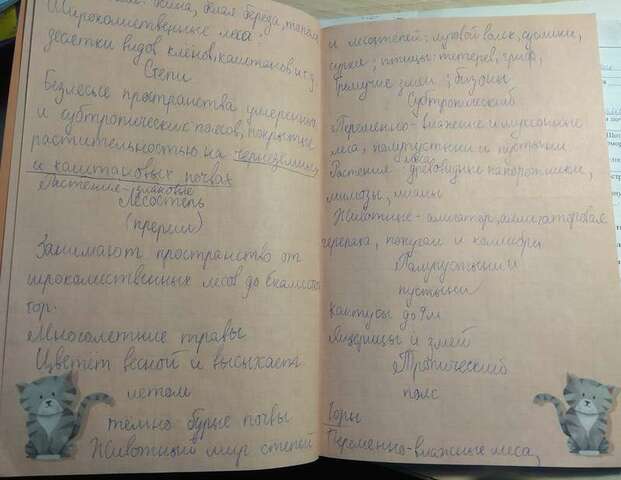 сина, белая береда, тополь,
Широколиственные леса
десятки видов клёнов, каштанов и т.д.
Степи
Безлесье пространства умеренных
и субтропических поясов, покрытые
растительностью на чернозёмных
и каштановых почвах
Растения - злаковые
Лесостепь
(прерии)
Занимают пространство от
широколиственных лесов до Скалистых
гор.
Многолетние травы
Цветёт весной и высыхает
летом
темно бурые почвы
Животный мир степей
и лесостепей: луговой волк, суслики,
сурки; птицы: тетерев, гриф,
Гремучие змеи; бизоны
Субтропический
Переменно-влажные и муссонные
леса, полупустыни и пустыни
леса
Растения: древовидные папоротники,
мимозы, лианы
Животные - аллигатор, аллигаторовая
черепаха, попугаи и колибри
Полупустыни и
пустыни
Кактусы до 9м
Ящерицы и змеи
Тропический
пояс
Горы
Переменно-влажные леса,